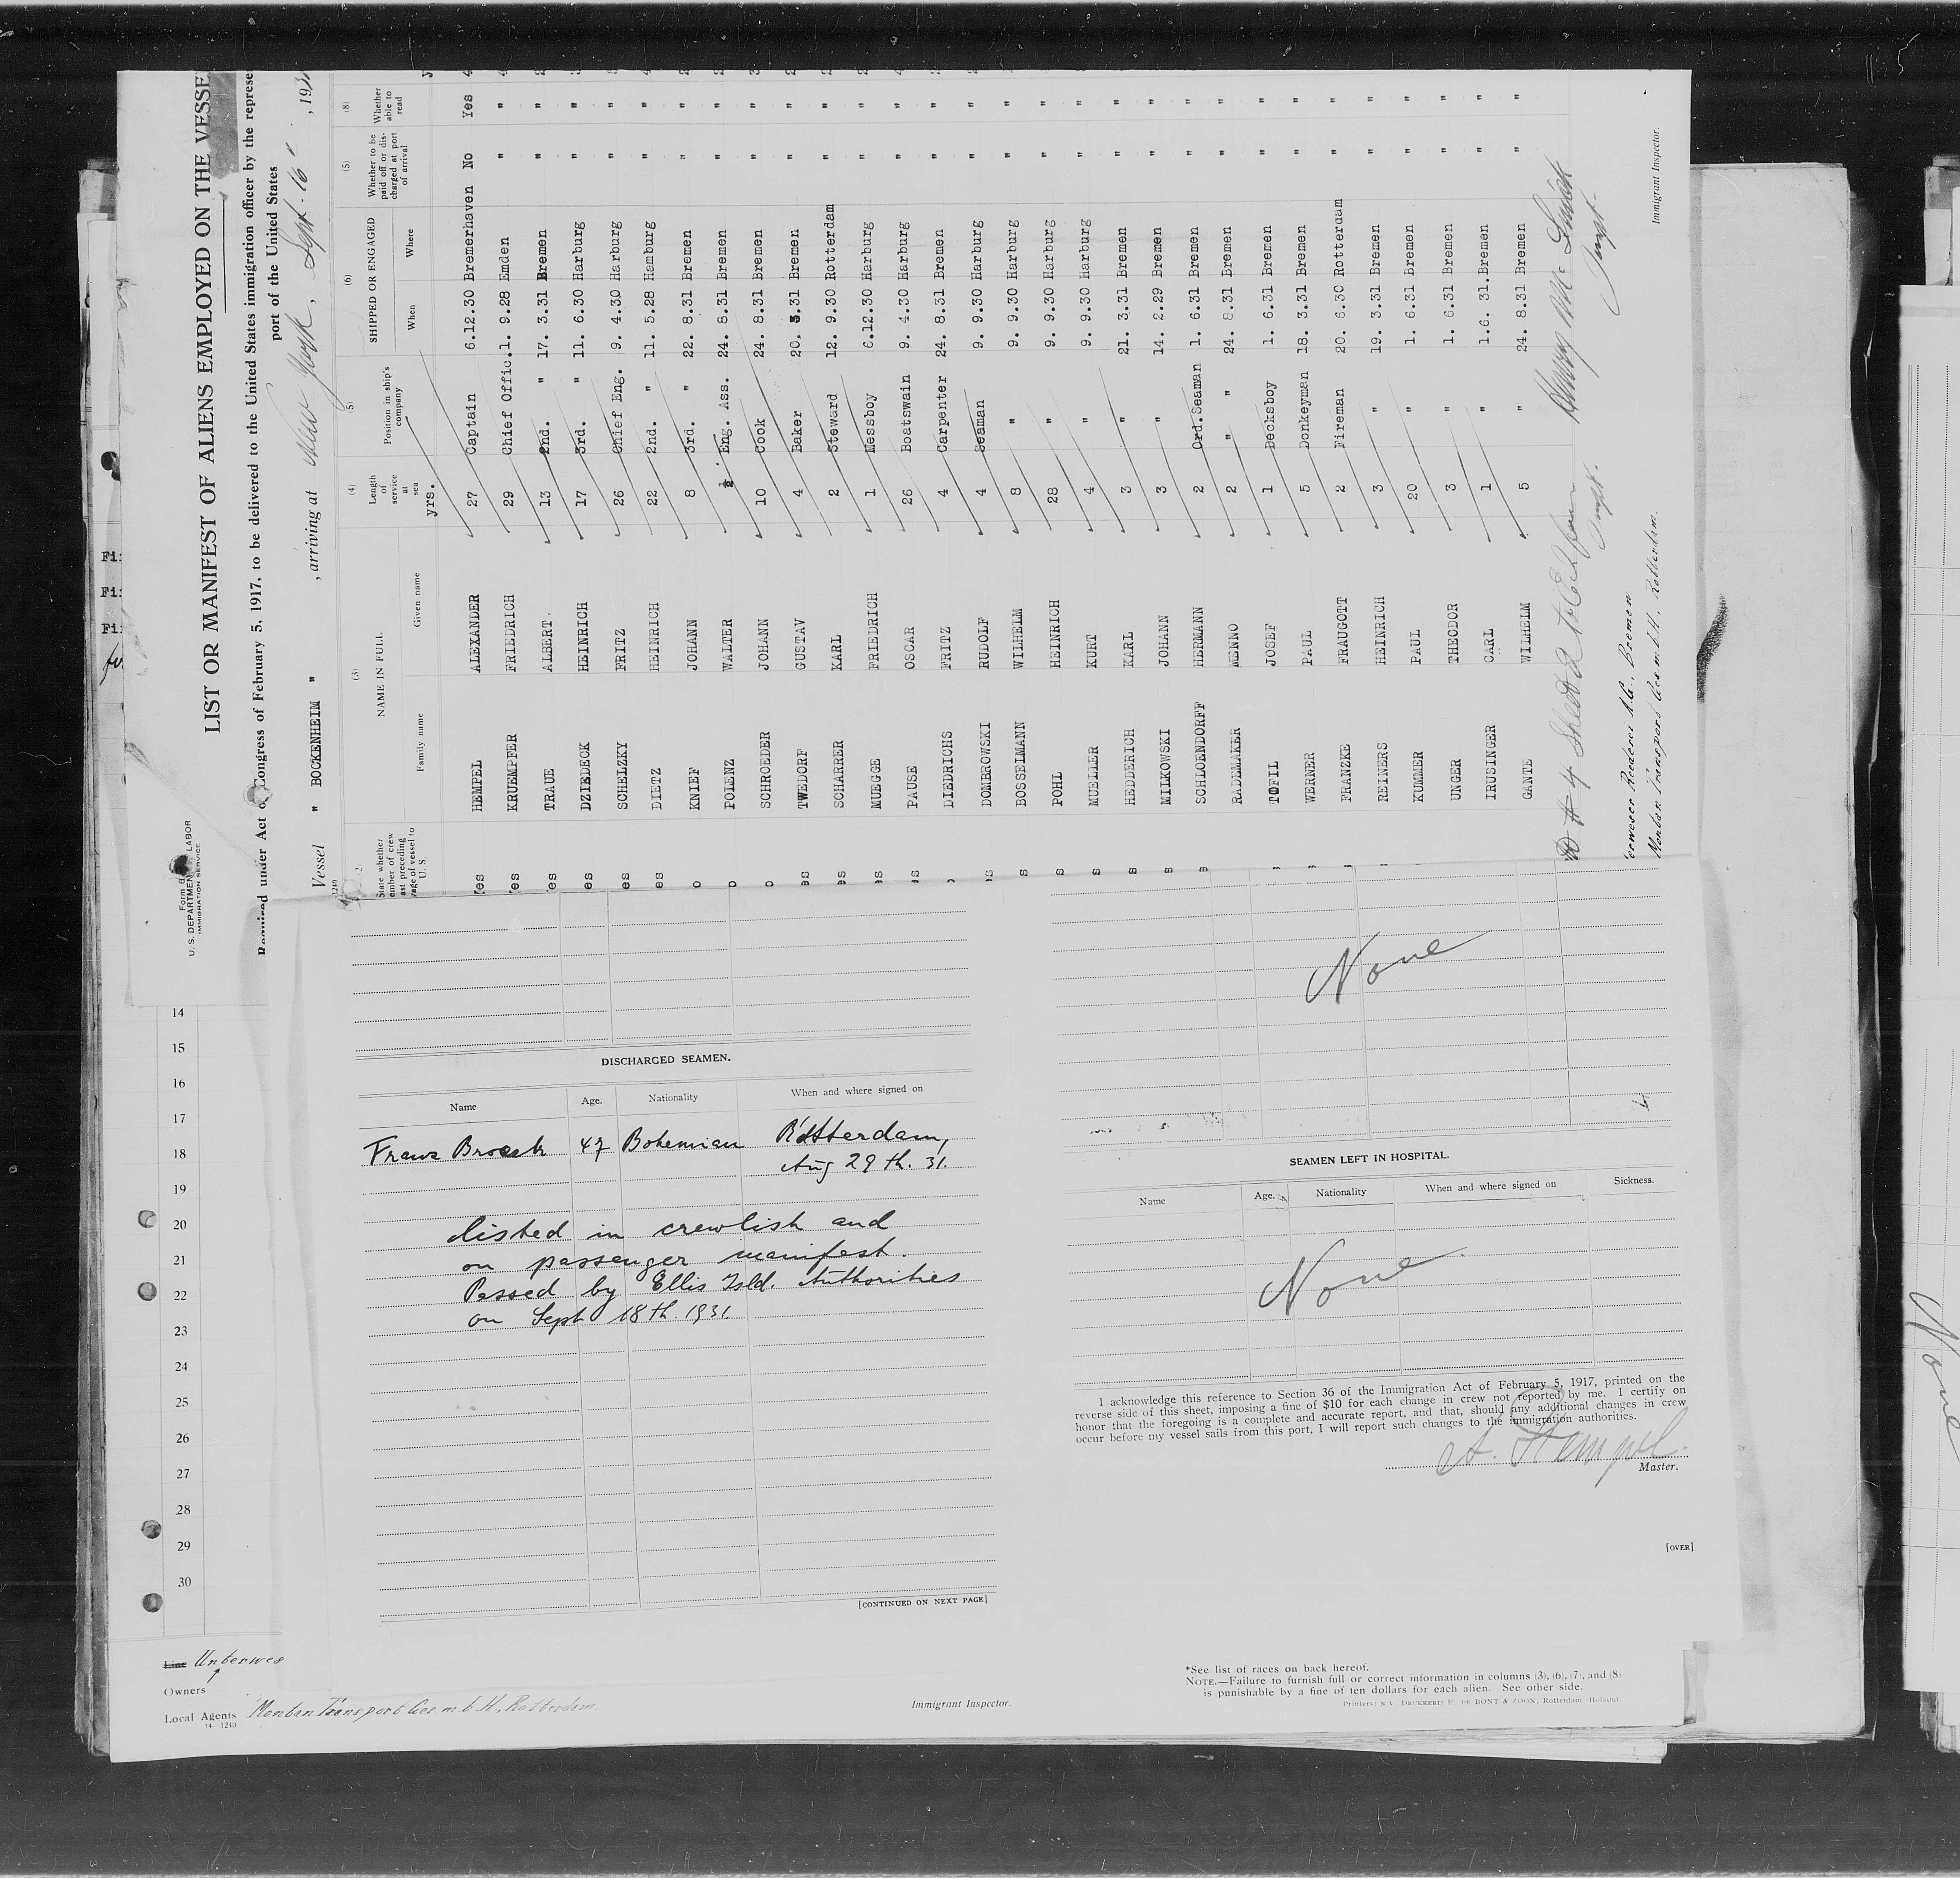 Form 6
U. S. DEPARTMENT LABOR
IMMIGRATION SERVICE
LIST OR MANIFEST OF ALIENS EMPLOYED ON THE VESSE
Required under Act of Congress of February 5, 1917, to be delivered to the United States immigration officer by the represe
port of the United States
Vessel " BOCKENHEIM " , arriving at New York, Sept. 16 , 193
1240
2
State whether
ember of crew
ast preceding
age of vessel to
U. S.
(3)
NAME IN FULL
Family name Given name
(4)
Length of service at sea
yrs.
(5)
Position in ship's company
(6)
SHIPPED OR ENGAGED
When Where
(5)
Whether to be paid off or discharged at port of arrival
(8)
Whether able to read
es HEMPEL ALEXANDER 27 Captain 6.12.30 Bremerhaven No Yes
es KRUEMPFER FRIEDRICH 29 Chief Offic. 1. 9.28 Emden " "
es TRAUE ALBERT 13 2nd. " 17. 3.31 Bremen " "
es DZIEDECK HEINRICH 17 3rd. " 11. 6.30 Harburg " "
es SCHELZKY FRITZ 26 Chief Eng. 9. 4.30 Harburg " "
es DIETZ HEINRICH 22 2nd. " 11. 5.28 Hamburg " "
o KNIEF JOHANN 8 3rd. " 22. 8.31 Bremen " "
o POLENZ WALTER ½ Eng. Ass. 24. 8.31 Bremen " "
o SCHROEDER JOHANN 10 Cook 24. 8.31 Bremen " "
es TWEDORF GUSTAV 4 Baker 20. 3.31 Bremen " "
es SCHARRER KARL 2 Steward 12. 9.30 Rotterdam " "
es MUEGGE FRIEDRICH 1 Messboy 6.12.30 Harburg " "
es PAUSE OSCAR 26 Boatswain 9. 4.30 Harburg " "
o DIEDRICHS FRITZ 4 Carpenter 24. 8.31 Bremen " "
s DOMBROWSKI RUDOLF 4 Seaman 9. 9.30 Harburg " "
s BOSSELMANN WILHELM 8 " 9. 9.30 Harburg " "
s POHL HEINRICH 28 " 9. 9.30 Harburg " "
s MUELLER KURT 4 " 9. 9.30 Harburg " "
s HEDDERICH KARL 3 " 21. 3.31 Bremen " "
s MILKOWSKI JOHANN 3 " 14. 2.29 Bremen " "
s SCHLOENDORFF HERMANN 2 Ord.Seaman 1. 6.31 Bremen " "
RADEMAKER MENNO 2 " " 24. 8.31 Bremen " "
TOFIL JOSEF 1 Decksboy 1. 6.31 Bremen " "
WERNER PAUL 5 Donkeyman 18. 3.31 Bremen " "
FRANZKE FRAUGOTT 2 Fireman 20. 6.30 Rotterdam " "
REINERS HEINRICH 3 " 19. 3.31 Bremen " "
KUMMER PAUL 20 " 1. 6.31 Bremen " "
UNGER THEODOR 3 " 1. 6.31 Bremen " "
IRUSINGER CARL 1 " 1.6. 31. Bremen " "
GANTE WILHELM 5 " 24. 8.31 Bremen " "
Immigrant Inspector.
erweser Reederei A.G., Bremen
Montan Transport Ges. m.b.H., Rotterdam.
Fi
Fi
Fi
14
15
16
17
18
19
20
21
22
23
24
25
26
27
28
29
30
DISCHARGED SEAMEN.
Name Age. Nationality When and where signed on
Franz 47 Bohemian Rotterdam,
Aug 29 th. 31.
listed in crewlist and
on passenger manifest.
Passed by Ellis Isld. Authorities
on Sept 18 th. 1931.
[CONTINUED ON NEXT PAGE]
None
SEAMEN LEFT IN HOSPITAL.
Name Age. Nationality When and where signed on Sickness.
None
I acknowledge this reference to Section 36 of the Immigration Act of February 5, 1917, printed on the
reverse side of this sheet, imposing a fine of $10 for each change in crew not reported by me. I certify on
honor that the foregoing is a complete and accurate report, and that, should any additional changes in crew
occur before my vessel sails from this port, I will report such changes to the immigration authorities.
A. Hempel.
Master.
[OVER]
Line Unterwes
Owners
Local Agents Montan Transport Ges. m. b. H., Rotterdam
14—1240
Immigrant Inspector.
*See list of races on back hereof.
NOTE.—Failure to furnish full or correct information in columns (3), (6), (7), and (8)
is punishable by a fine of ten dollars for each alien. See other side.
Printers: N.V. DRUKKERIJ F. DE BONT & ZOON, Rotterdam (Holland)
None